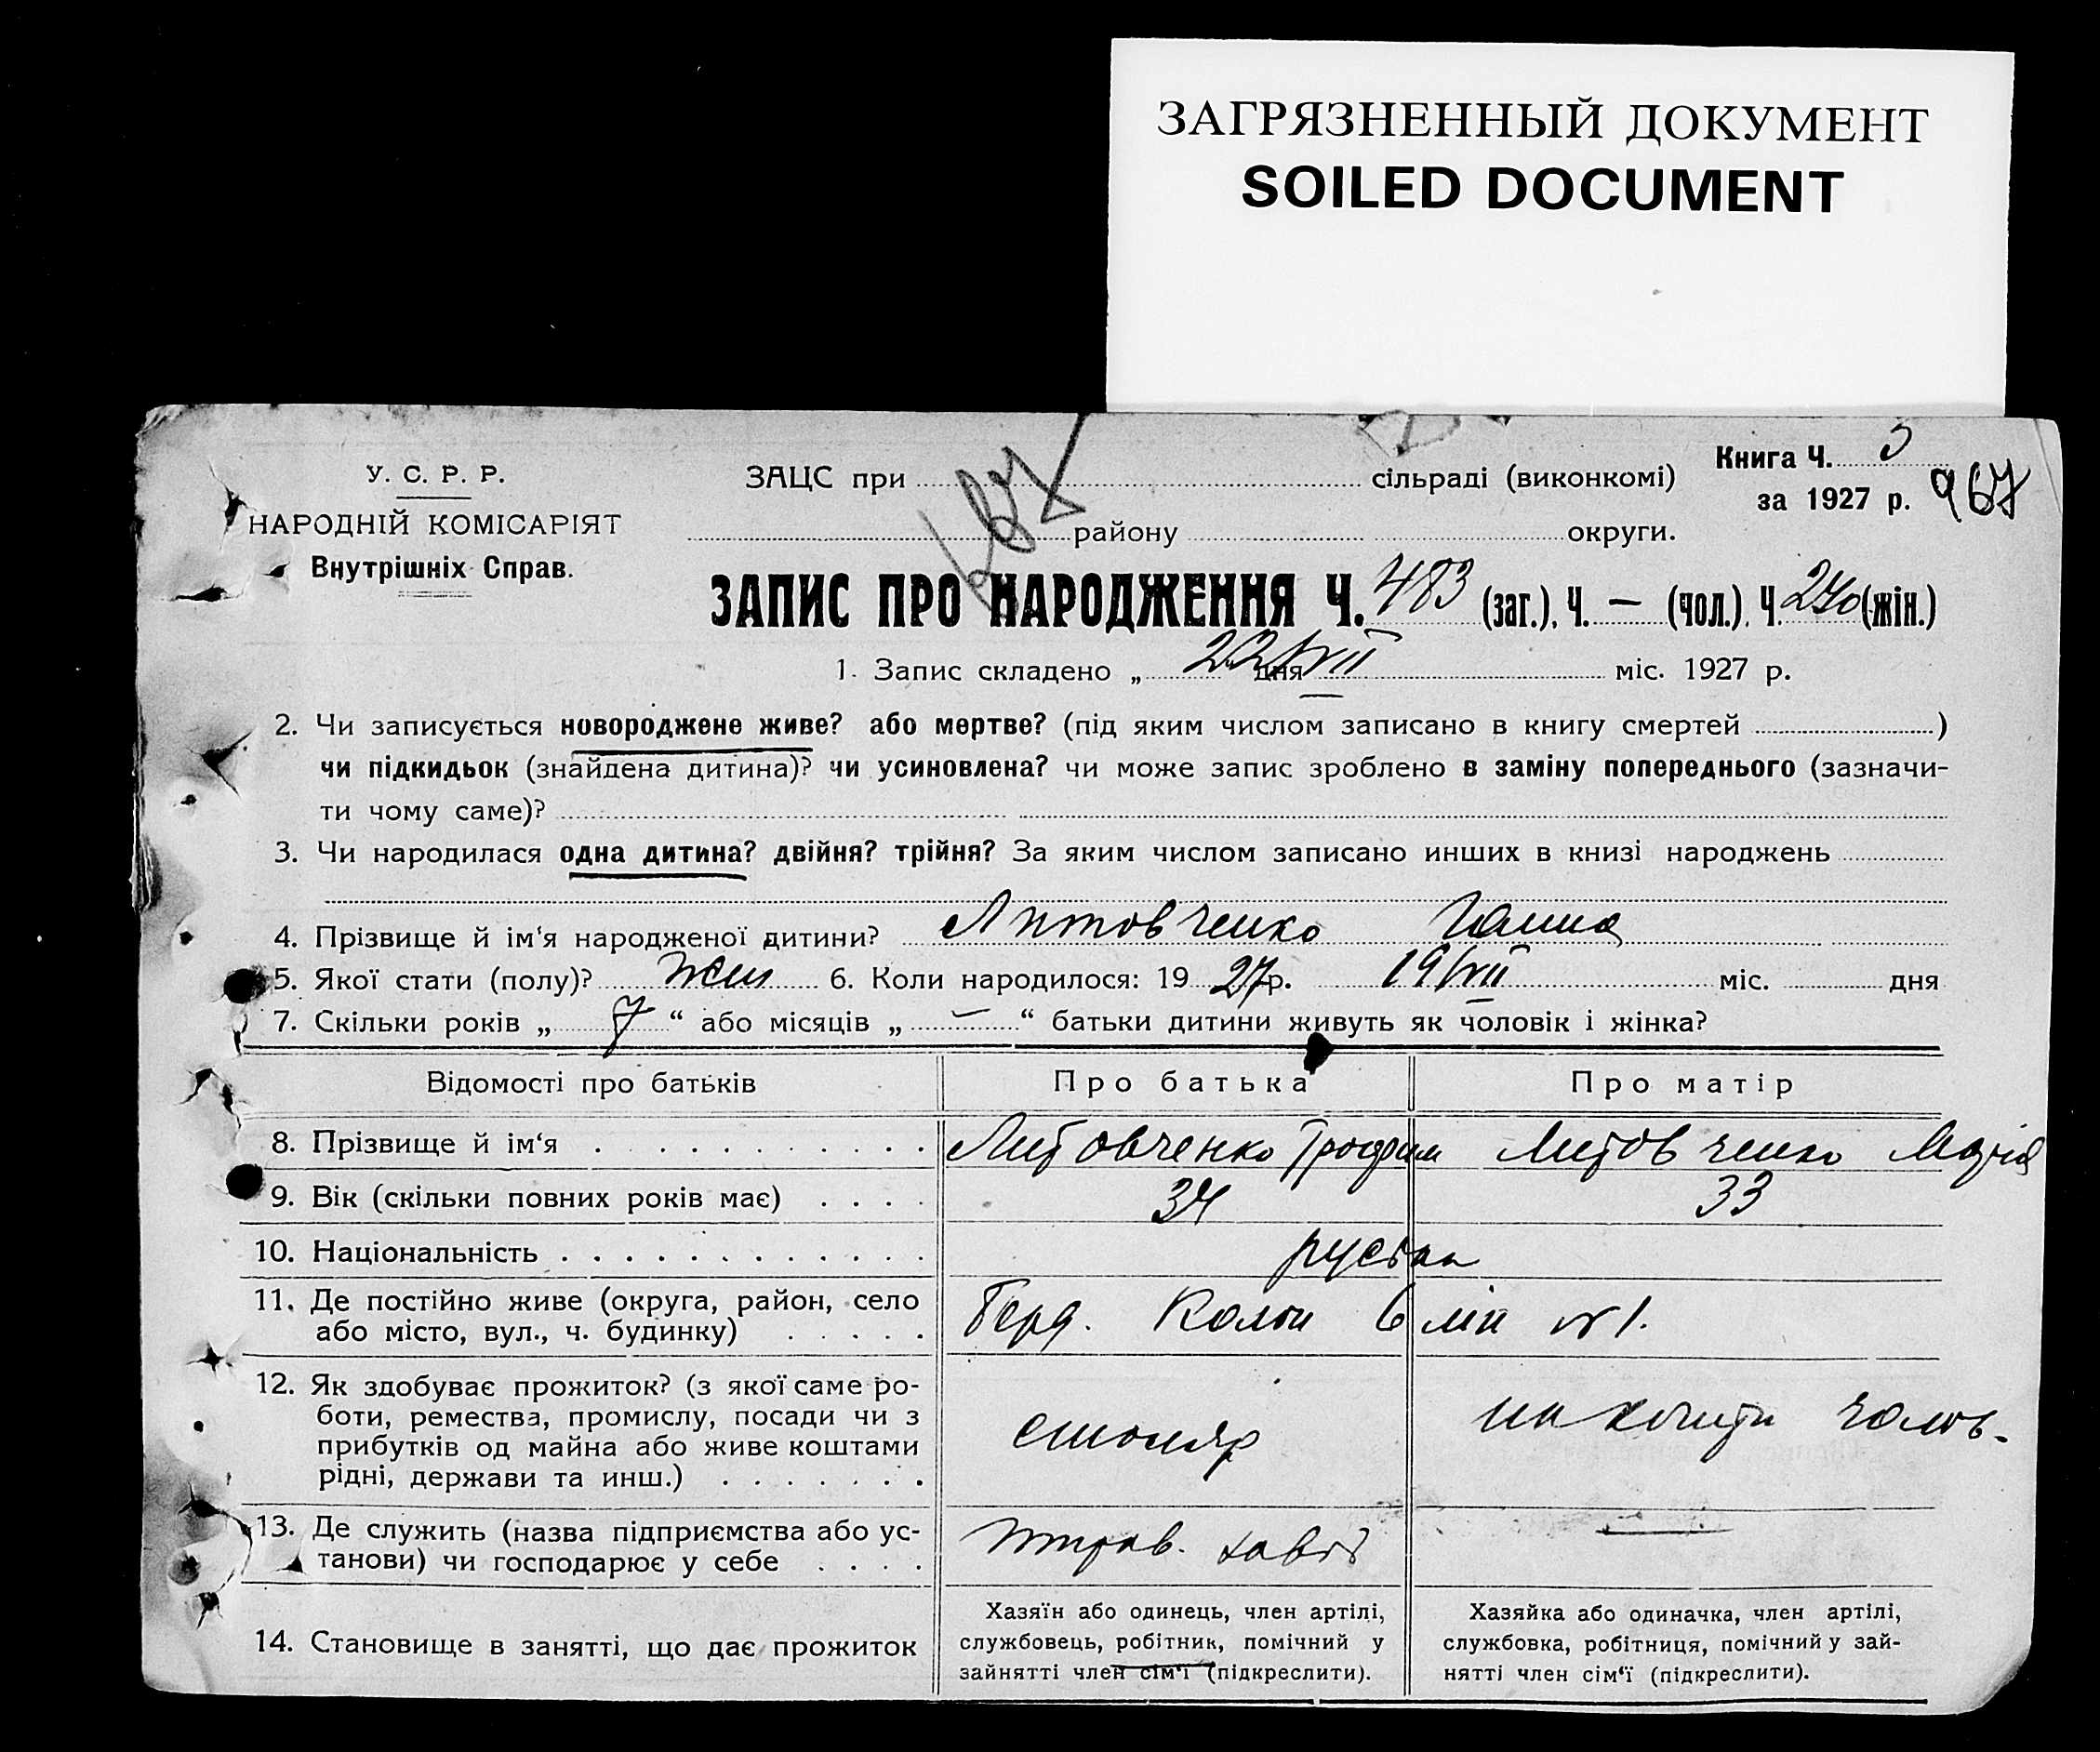 ЗАГРЯЗНЕННЫЙ ДОКУМЕНТ
SOILED DOCUMENT
У. С. Р. Р.
НАРОДНІЙ КОМІСАРІЯТ
Внутрішніх Справ.
ЗАЦС при сільраді (виконкомі)
району округи.
Книга Ч. 3
за 1927 р. 967
ЗАПИС ПРО НАРОДЖЕННЯ Ч. 483 (заг.), Ч. — (чол.), Ч. 240 (жін.)
1. Запис складено „ 22/VII дня міс. 1927 р.
2. Чи записується новороджене живе? або мертве? (під яким числом записано в книгу смертей )
чи підкидьок (знайдена дитина)? чи усиновлена? чи може запис зроблено в заміну попереднього (зазначи-
ти чому саме)?
3. Чи народилася одна дитина? двійня? трійня? За яким числом записано инших в книзі народжень
4. Прізвище й ім‘я народженої дитини? Литовченко Галина
5. Якої стати (полу)? Жін 6. Коли народилося: 1927 р. 19/VII міс. дня
7. Скільки років „ 7 “ або місяців „ — “ батьки дитини живуть як чоловік і жінка?
Відомості про батьків Про батька Про матір
8. Прізвище й ім‘я Литовченко Трофим Литовченко Марія
9. Вік (скільки повних років має) 34 33
10. Національність руськи
11. Де постійно живе (округа, район, село
або місто, вул., ч. будинку) Берд. Колон 6 лін №1.
12. Як здобуває прожиток? (з якої саме ро-
боти, ремества, промислу, посади чи з
прибутків од майна або живе коштами
рідні, держави та инш.) столяр на кошти чолов.
13. Де служить (назва підприємства або ус-
танови) чи господарює у себе завод —
14. Становище в занятті, що дає прожиток
Хазяїн або одинець, член артілі,
службовець, робітник, помічний у
зайнятті член сім‘ї (підкреслити).
Хазяйка або одиначка, член артілі,
службовка, робітниця, помічний у зай-
нятті член сім‘ї (підкреслити).